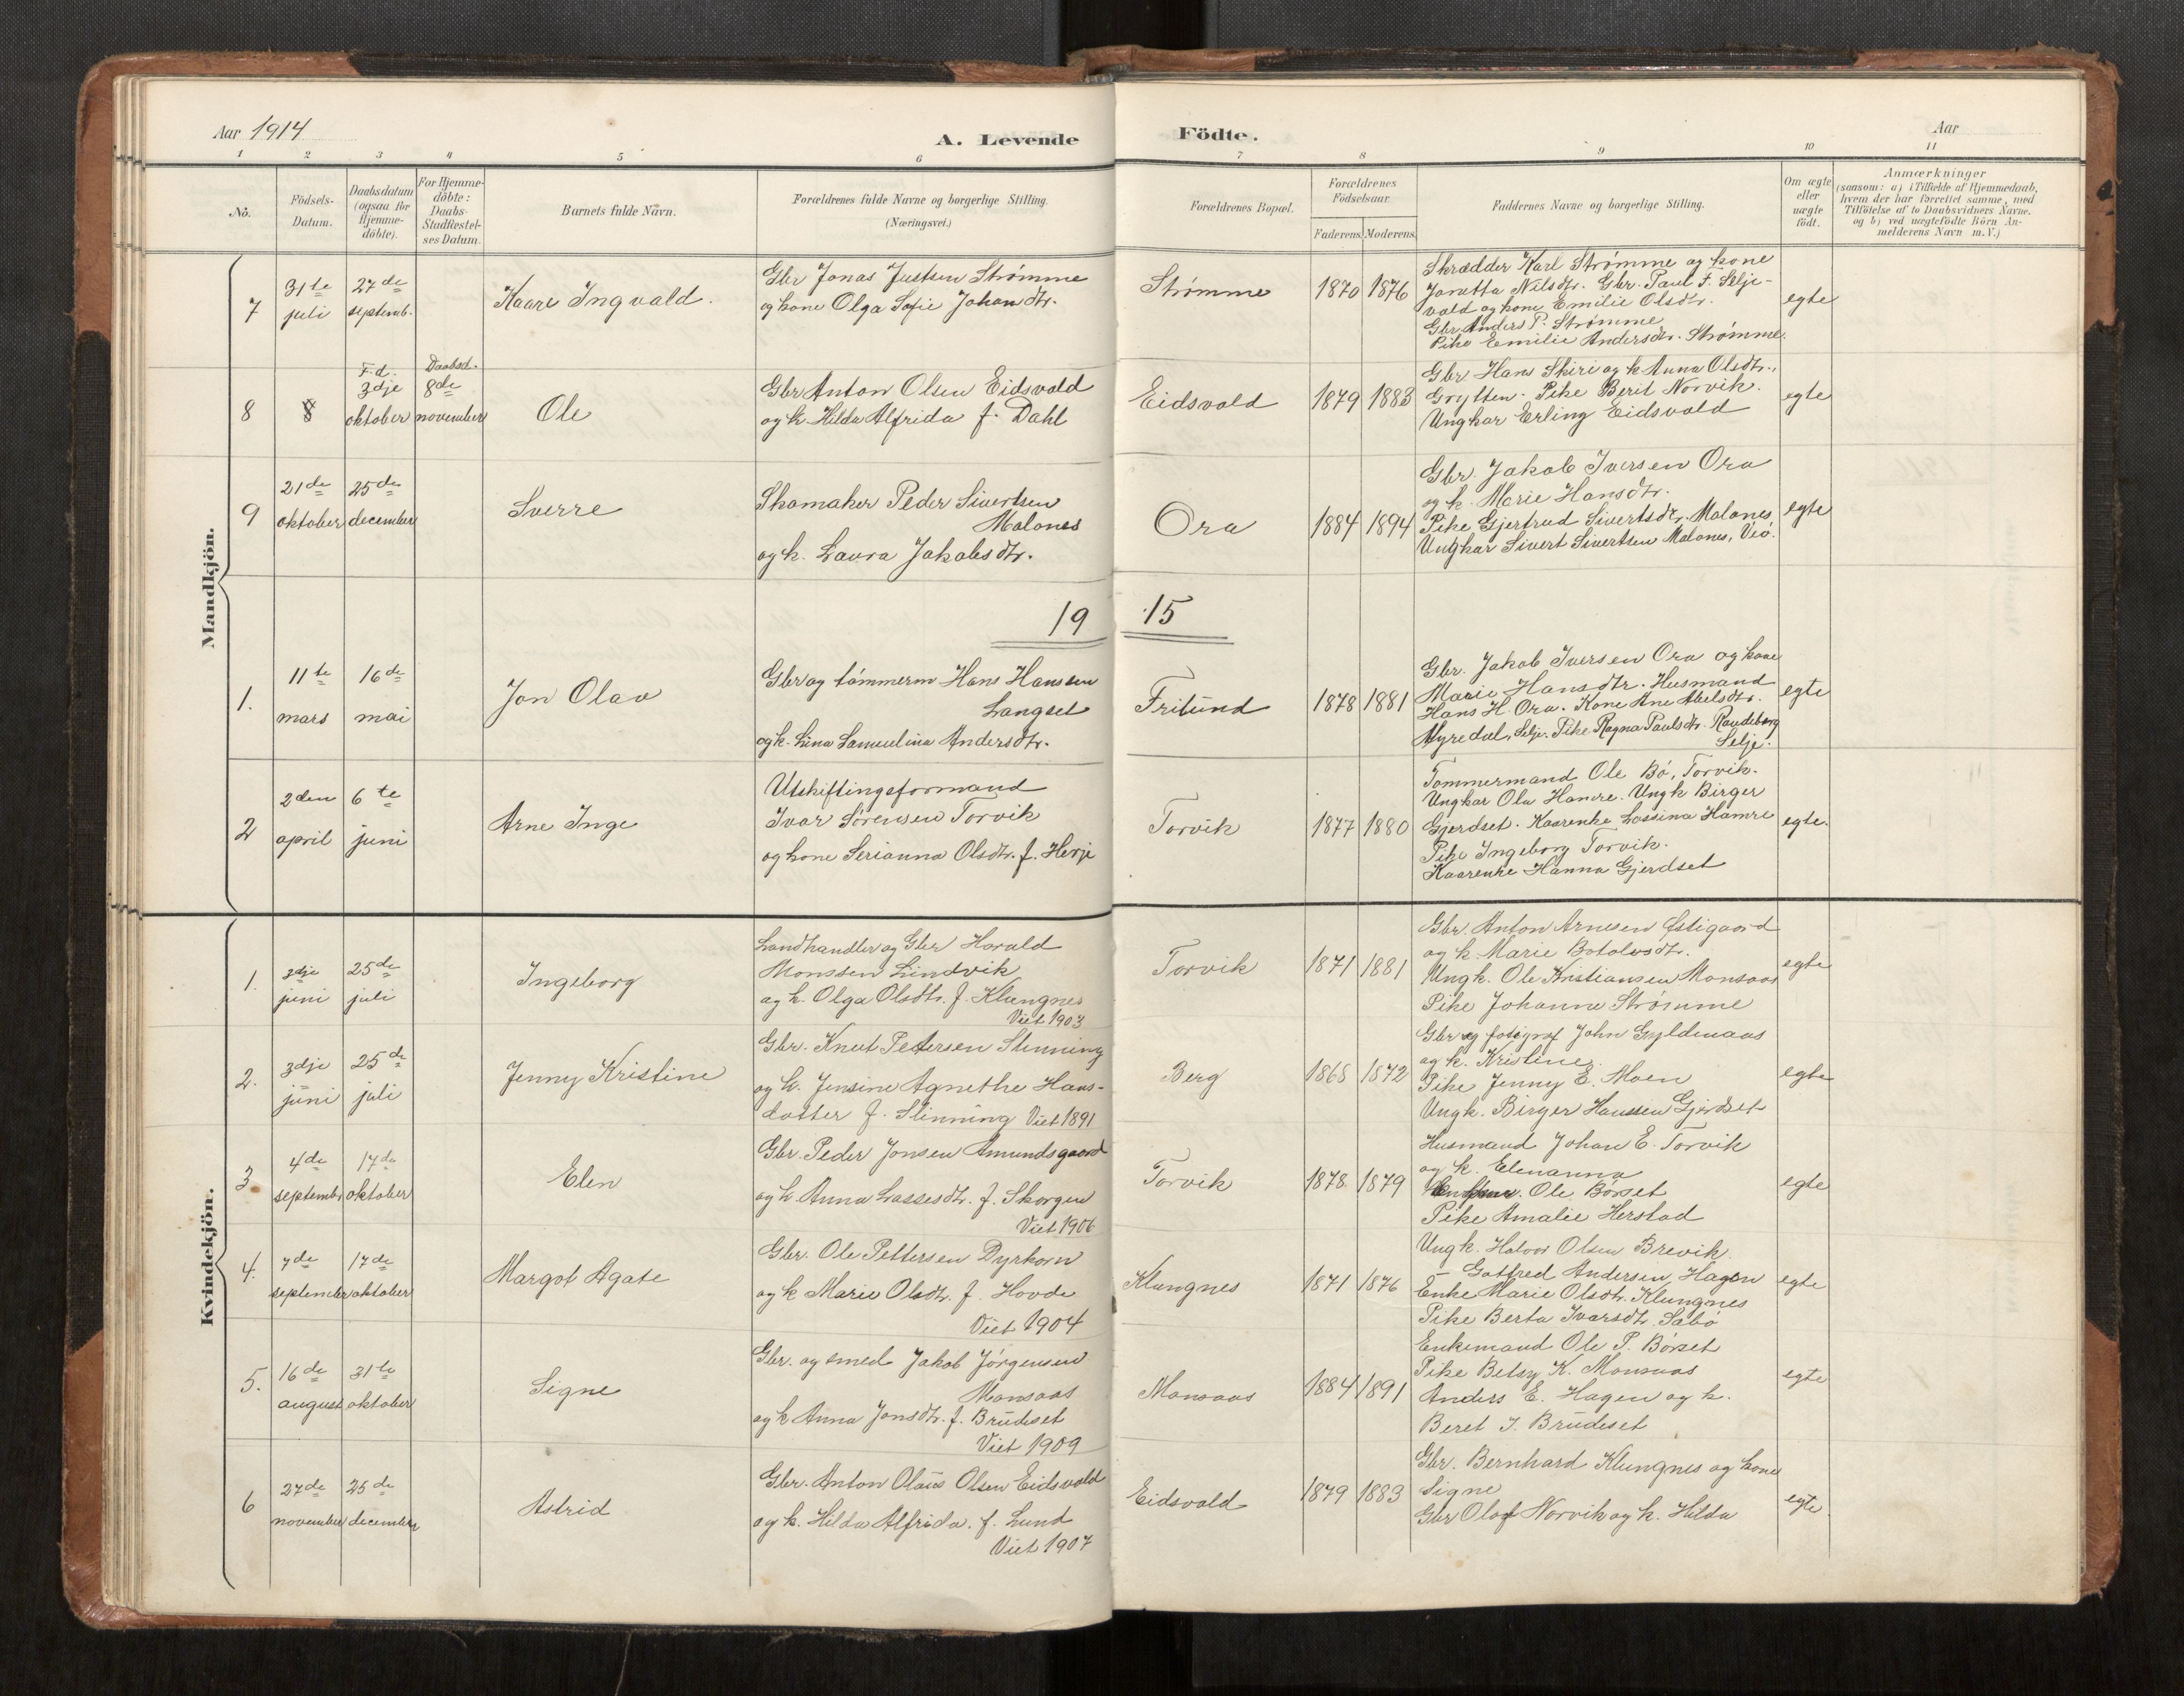 Aar 1914
A. Levende Födte.
Aar
1 2 3 4 5 6 7 8 9 10 11
No.
Födsels-Datum.
Daabsdatum (ogsaa for Hjemme-döbte).
For Hjemme-döbte: Daabs-Stadfæstel-ses Datum.
Barnets fulde Navn.
Forældrenes fulde Navne og borgerlige Stilling. (Næringsvei.)
Forældrenes Bopæl.
Forældrenes Födselsaar.
Faderens. Moderens.
Faddernes Navne og borgerlige Stilling.
Om ægte eller uægte födt.
Anmærkninger
(saasom: a) i Tilfælde af Hjemmedaab,
hvem der har forrettet samme, med
Tilföielse af to Daabsvidners Navne.
og b) ved uægtefödte Börn An-
melderens Navn m. V.)
Mandkjön.
7
31te juli
27de septemb.
Kaare Ingvald.
Gbr Jonas Justsen Strømme
og kone Olga Sofie Johandtr.
Strømme
1870 1876
Skrædder Karl Strømme og kone
Jonetta Nilsdtr. Gbr. Paul F. Selje-
vold og kone Emilie Olsdtr.
Gbr. Anders P. Strømme
Pike Emilie Andersdtr. Strømme.
egte
8
F.d.
3dje oktober
Daabsd.
8de november
Ole
Gbr Anton Olsen Eidsvold
og k. Hilda Alfrida f. Dahl
Eidsvold
1879 1883
Gbr Hans Skiri og k Anna Olsdtr.,
Grytten. Pike Berit Norvik.
Ungkar Erling Eidsvold
egte
9
21de oktober
25de december
Sverre
Skomaker Peder Sivertsen
Malones
og k. Laura Jakobsdtr.
Ora
1884 1894
Gbr Jakob Iversen Ora
og k. Marie Hansdtr.
Pike Gjertrud Sivertsdtr. Malones
Ungkar Sivert Sivertsen Malones, Veø.
egte
19 15
1.
11te mars
16de mai
Jon Olav
Gbr og tømmerm Hans Hanssen
Langset
og k. Lina Samuelina Andersdtr.
Frilund
1878 1881
Gbr. Jakob Iversen Ora og kone
Marie Hansdtr. Husmand
Hans H. Ora. Kone Ane Abelsdtr.
Myredal, Selje. Pike Ragna Paulsdtr. Raudeberg
Selje.
egte
2
2den april
6te juni
Arne Inge
Utskiftingsformand
Ivar Sørensen Torvik
og kone Serianna Olsdtr. f. Herje
Torvik
1877 1880
Tømmermand Ole Bø, Torvik.
Ungkar Ola Hamre. Ungk Birger
Gjerdset. Kaarenke Lossina Hamre
Pike Ingeborg Torvik.
Kaarenke Hanna Gjerdset
egte.
Kvindekjön.
1.
3dje juni
25de juli
Ingeborg
Landhandler og Gbr Harald
Monssen Lindvik
og k. Olga Olsdtr. f. Klungnes
Viet 1903
Torvik
1871 1881
Gbr. Anton Arnesen Østigaard
og k. Marie Botolvsdtr.
Ungk. Ole Kristiansen Monsaas
Pike Johanna Strømme
egte
2.
3dje juni
25de juli
Jenny Kristine
Gbr. Knut Petersen Slinning
og k. Jensine Agnethe Hans-
datter f. Slinning Viet 1891
Berg
1868 1872
Gbr og fotograf John Gyldenaas
og k. Kristine
Pike Jenny E. Moen
Ungk. Birger Hanssen Gjerdset
egte
3
4de september
17de oktober
Elen
Gbr. Peder Jonsen Amundsgaard
og k Anna Lassesdtr. f. Skorgen
Viet 1906
Torvik
1878 1879
Husmand Johan E. Torvik
og k. Elenanna
Ole Børset
Pike Amalie Herstad
egte
4.
7de september
17de oktober
Margot Agate
Gbr. Ole Pettersen Dyrkorn
og k Marie Olsdtr. f. Hovde
Viet 1904
Klungnes
1871 1876
Ungk. Halvor Olsen Brevik
— Gotfred Andersen Hagen
Enke Marie Olsdtr. Klungnes
Pike Berta Ivarsdtr. Sæbø
egte
5.
16de august
31te oktober
Signe
Gbr. og smed Jakob Jørgensen
Monsaas
og k Anna Jonsdtr. f. Brüdeset
Viet 1909
Monsaas
1884 1891
Enkemand Ole P. Børset
Pike Betsy K. Monsaas
Anders E. Hagen og k.
Beret J. Brüdeset
egte
6
27de november
25de december
Astrid
Gbr. Anton Olaüs Olsen Eidsvold
og k. Hilda Alfrida. f. Lund
Viet 1907
Eidsvold
1879 1883
Gbr. Bernhard Klungnes og kone
Signe
Gbr Olaf Norvik og k. Hilda
egte.